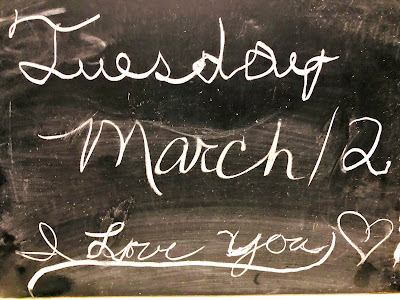 Tuesday
March 12
I Love You ♡